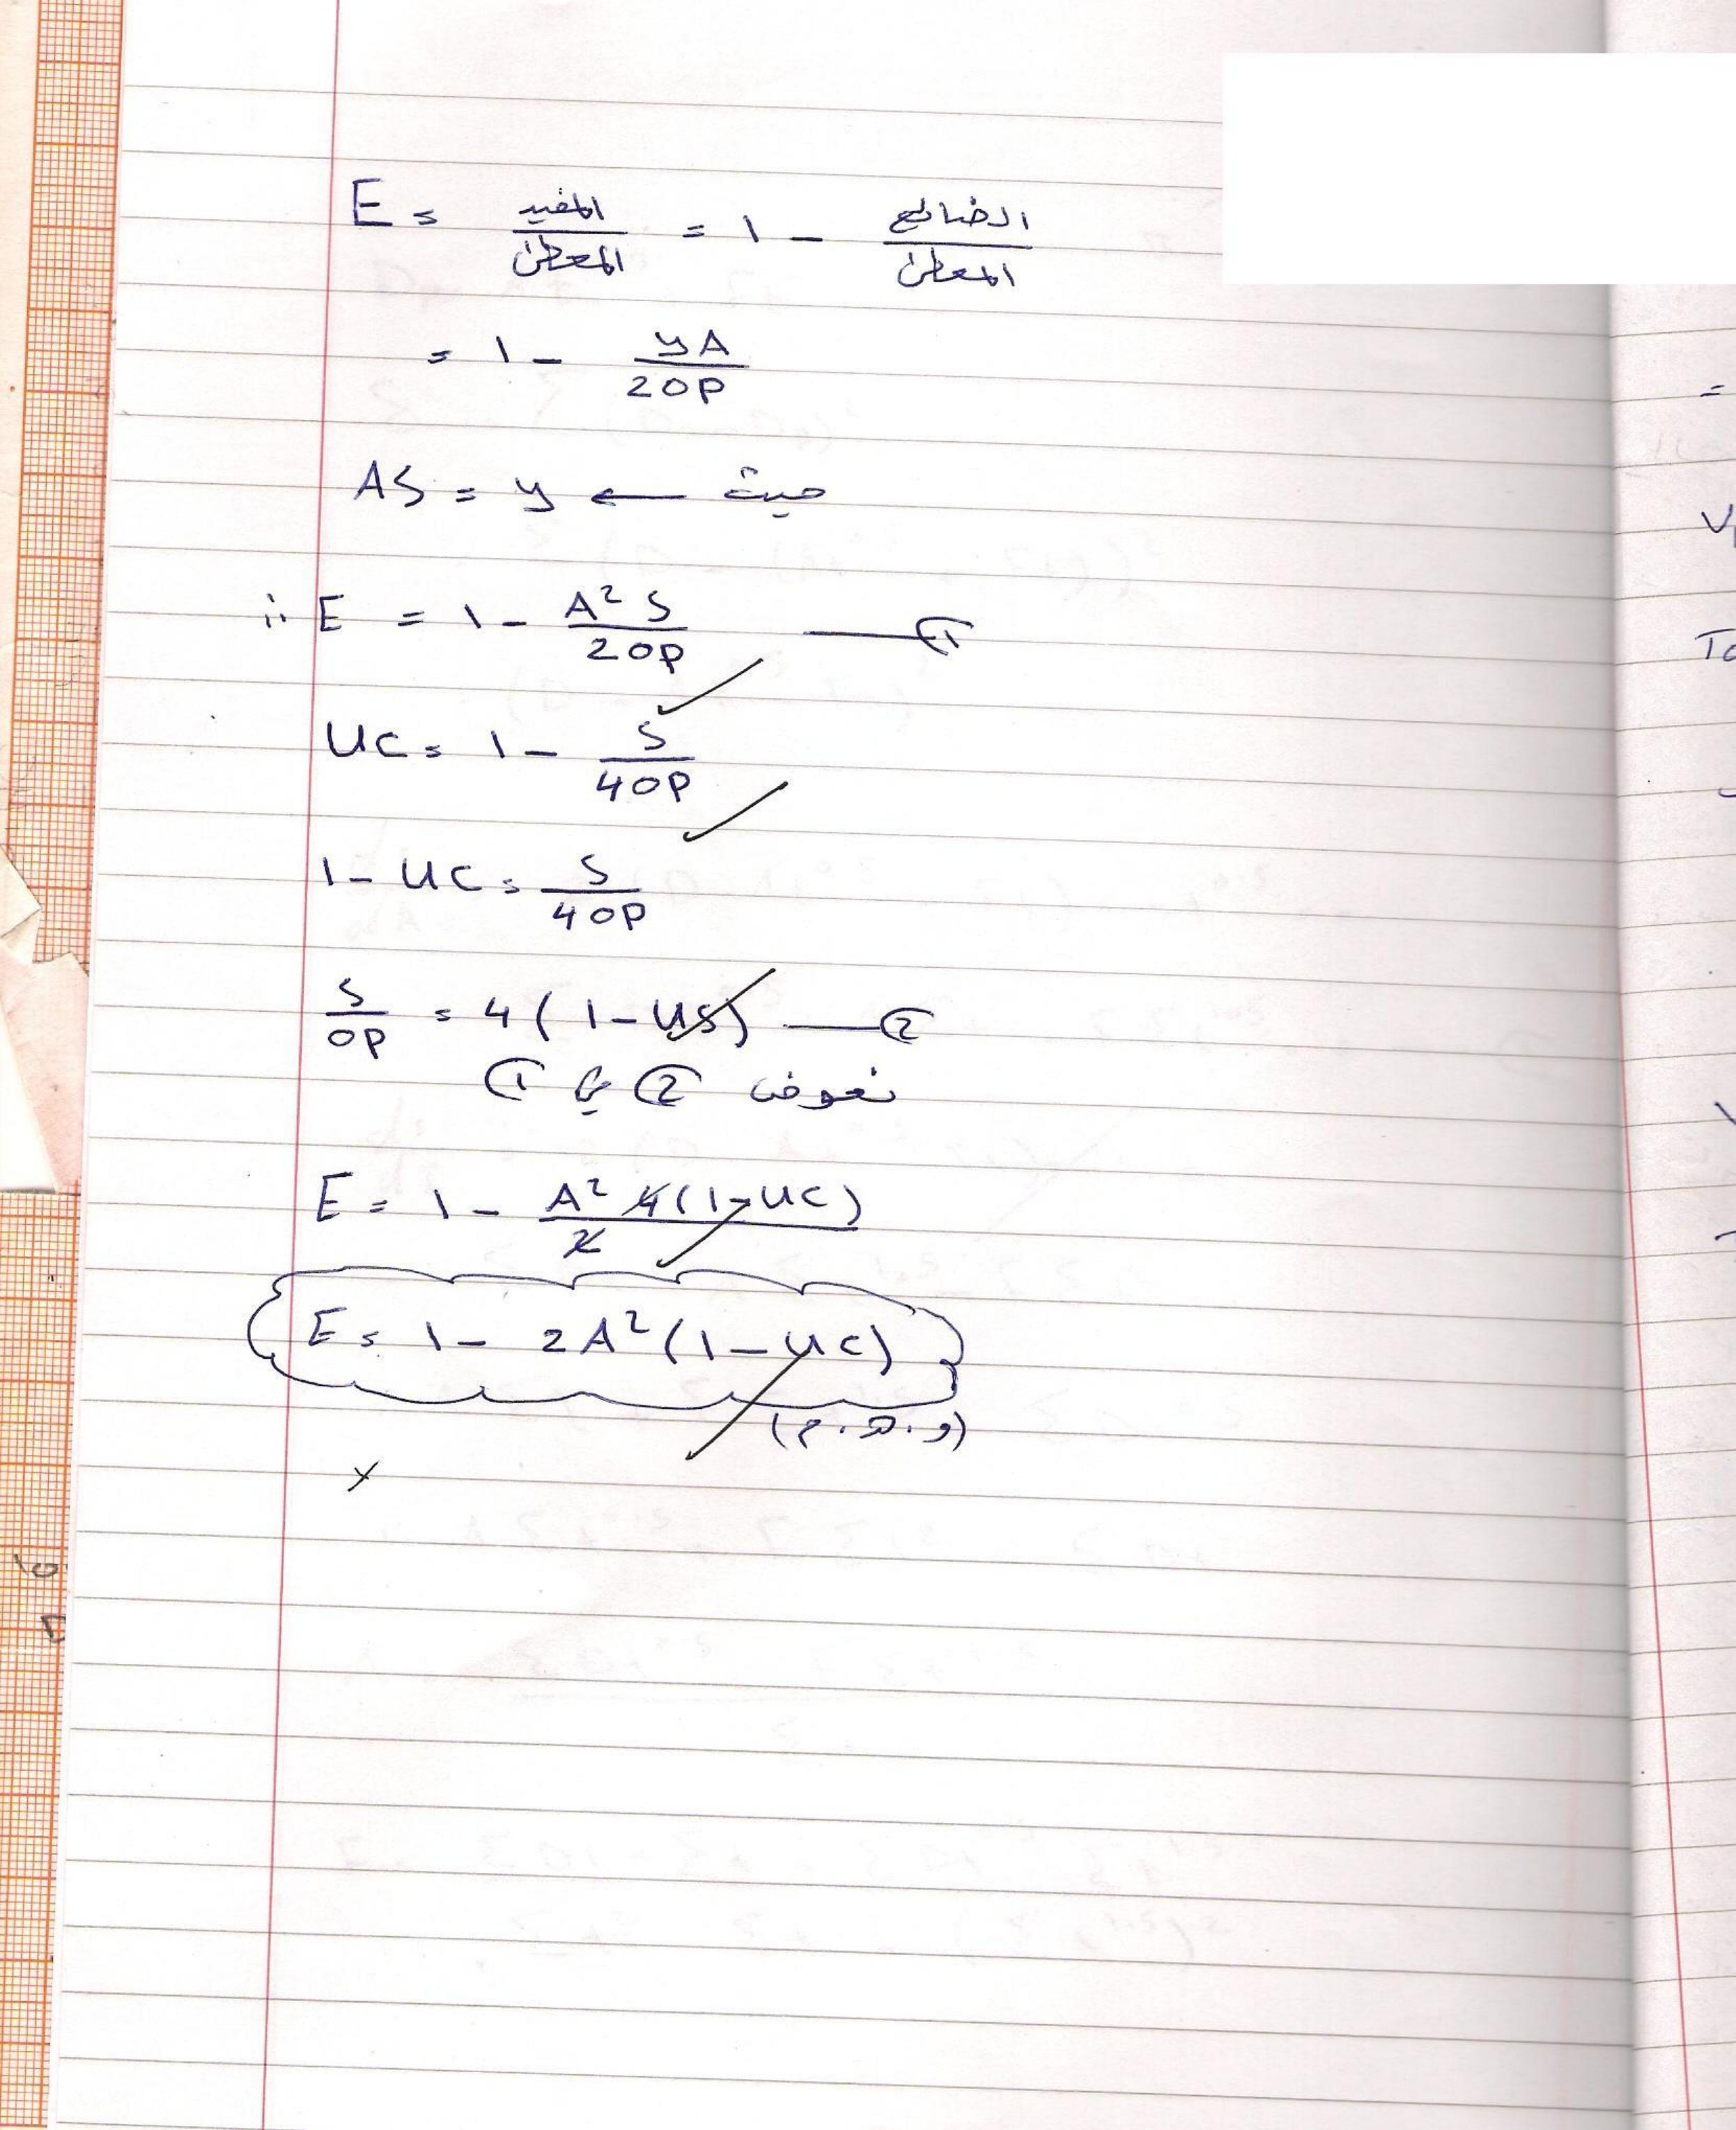 E = المفيد / المعطى = 1 - الضائع / المعطى
= 1 - yA / 2OP
AS = y ← حيث
∴ E = 1 - A² S / 2OP — ①
UC = 1 - S / 4OP
1 - UC = S / 4OP
S / OP = 4 ( 1 - US) — ②
نعوض ② في ①
E = 1 - A² 4(1-UC) / 2
E = 1 - 2A² (1 - UC)
(و.ھ.م)
x